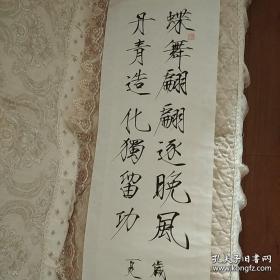 蝶舞翩翩逐晚风
丹青造化獨留功
孔夫子旧书网